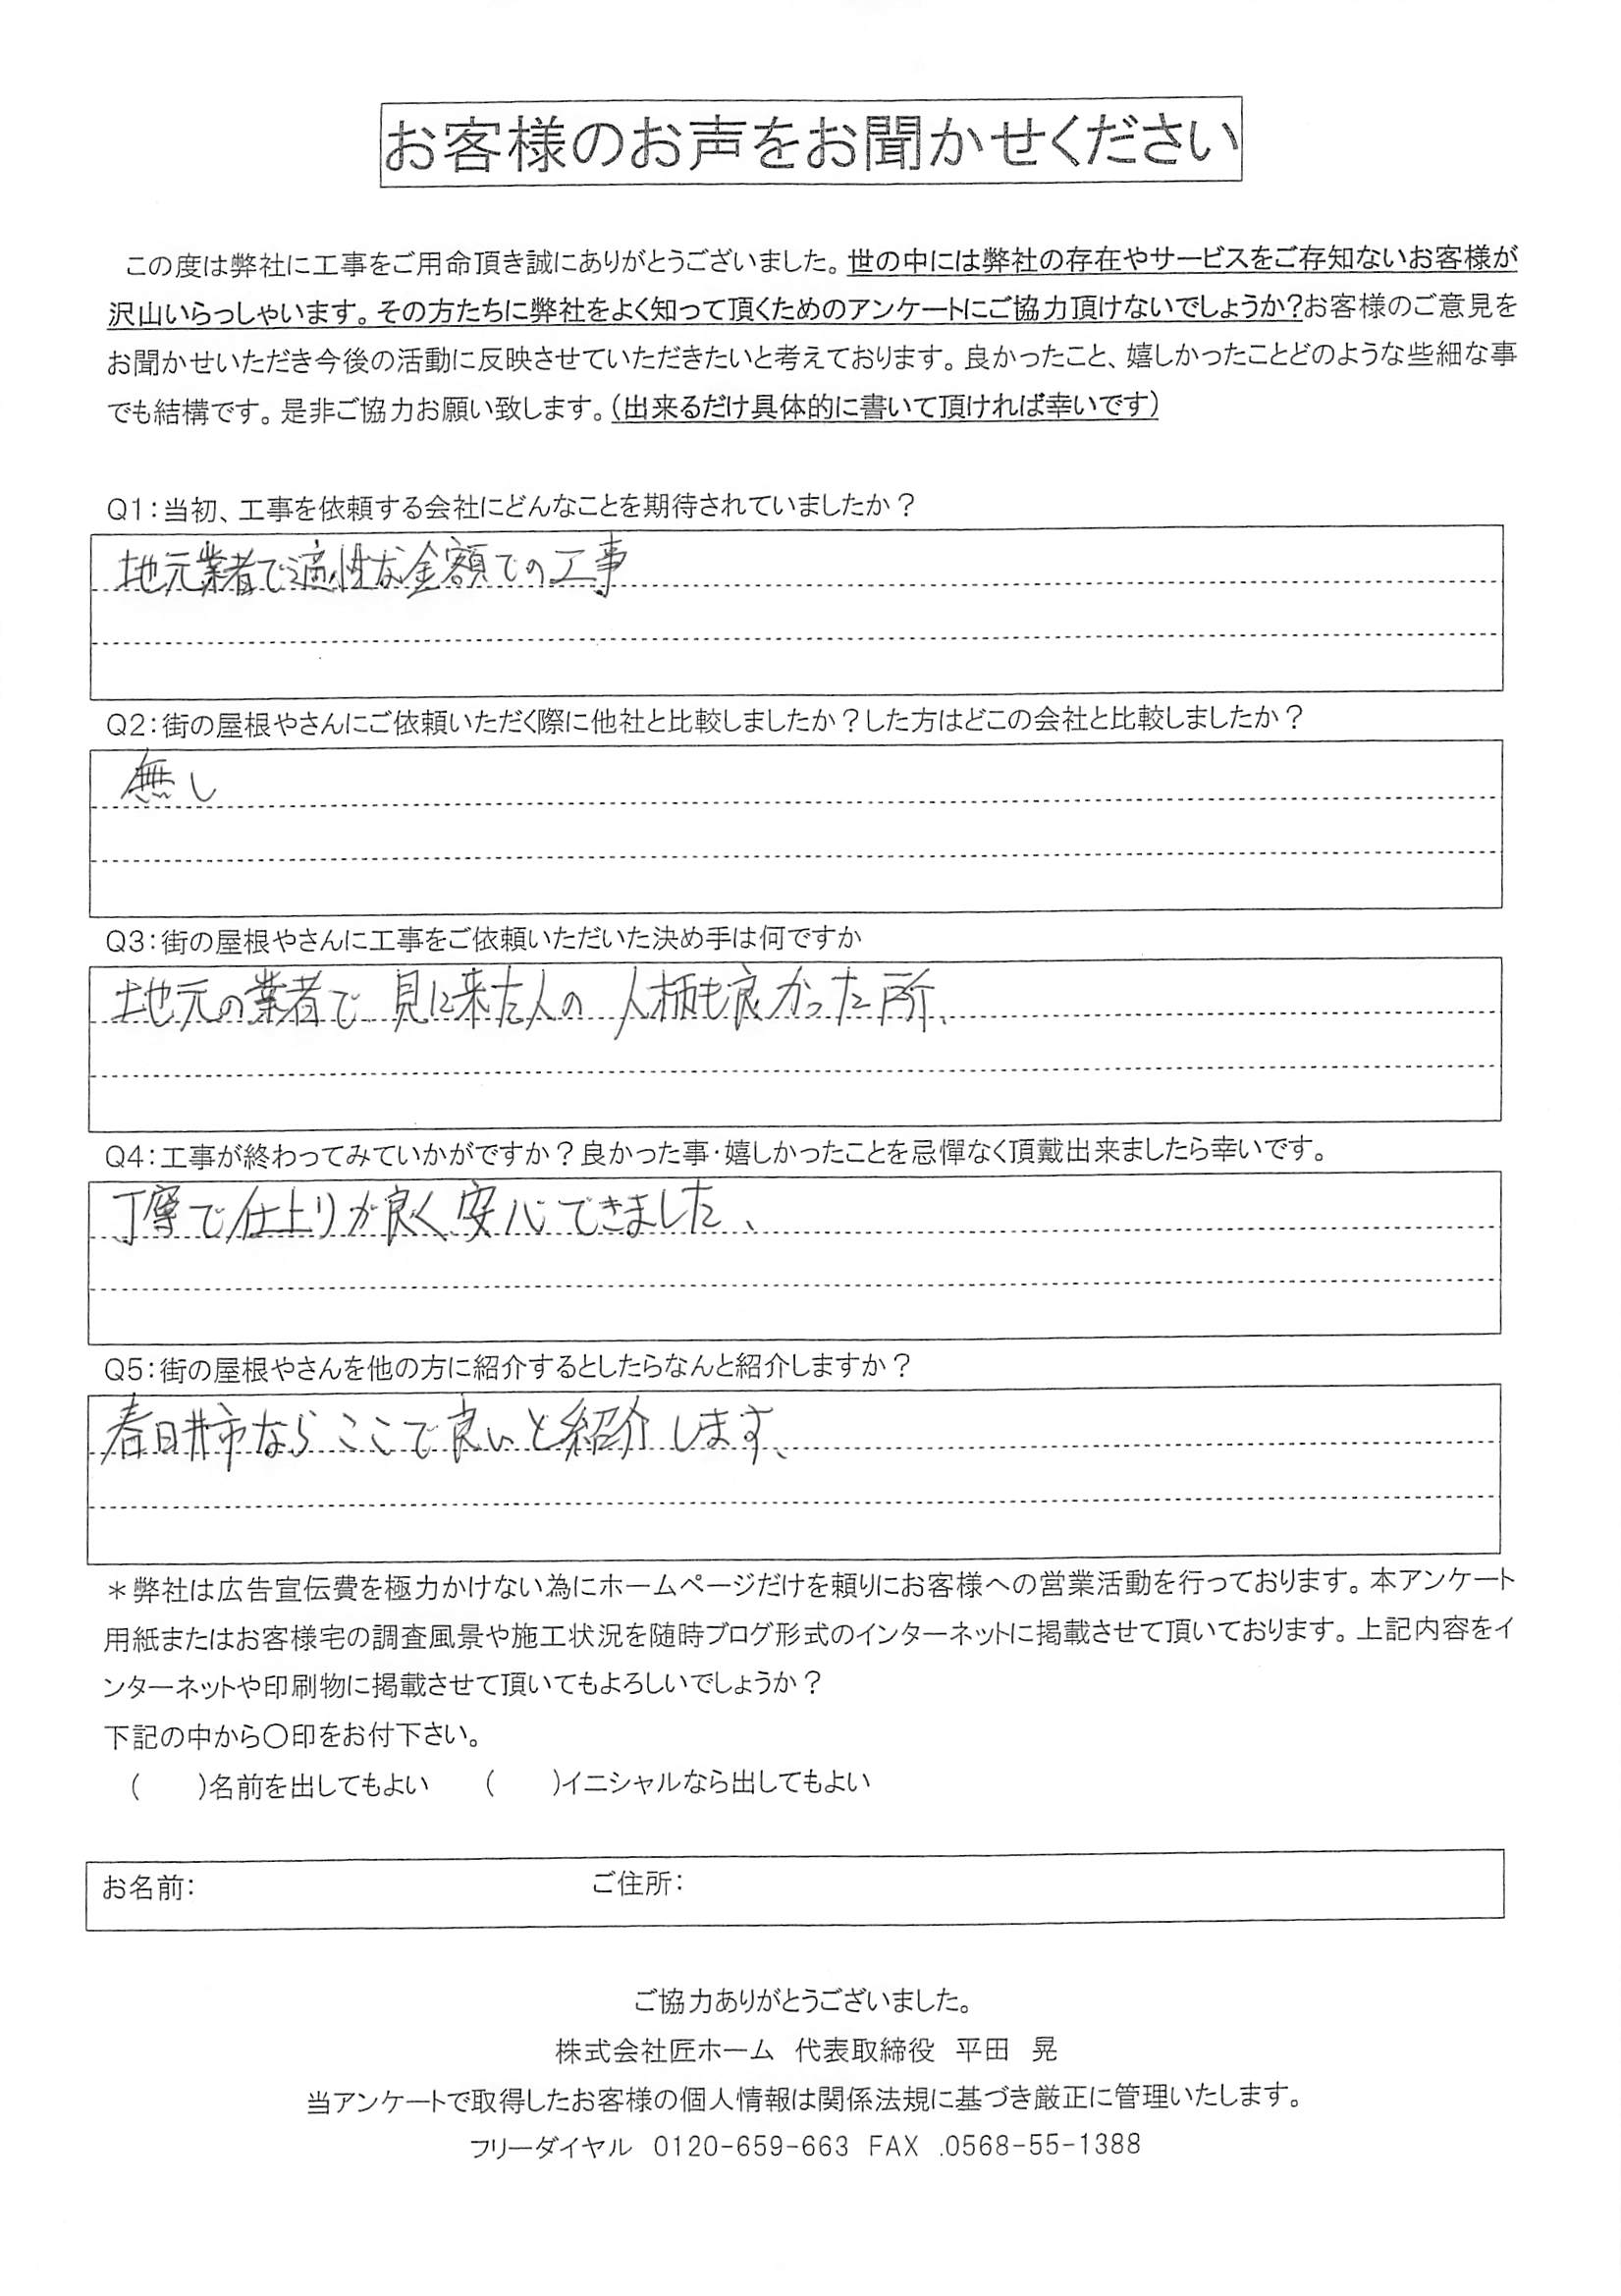 お客様のお声をお聞かせください
この度は弊社に工事をご用命頂き誠にありがとうございました。世の中には弊社の存在やサービスをご存知ないお客様が
沢山いらっしゃいます。その方たちに弊社をよく知って頂くためのアンケートにご協力頂けないでしょうか?お客様のご意見を
お聞かせいただき今後の活動に反映させていただきたいと考えております。良かったこと、嬉しかったことどのような些細な事
でも結構です。是非ご協力お願い致します。(出来るだけ具体的に書いて頂ければ幸いです)
Q1:当初、工事を依頼する会社にどんなことを期待されていましたか?
地元業者で適性な金額での工事
Q2:街の屋根やさんにご依頼いただく際に他社と比較しましたか?した方はどこの会社と比較しましたか?
無し
Q3:街の屋根やさんに工事をご依頼いただいた決め手は何ですか
地元の業者で見に来た人の人柄も良かった所、
Q4:工事が終わってみていかがですか?良かった事・嬉しかったことを忌憚なく頂戴出来ましたら幸いです。
丁寧で仕上りが良く安心できました、
Q5:街の屋根やさんを他の方に紹介するとしたらなんと紹介しますか?
春日井市ならここで良いと紹介します、
*弊社は広告宣伝費を極力かけない為にホームページだけを頼りにお客様への営業活動を行っております。本アンケート
用紙またはお客様宅の調査風景や施工状況を随時ブログ形式のインターネットに掲載させて頂いております。上記内容をイ
ンターネットや印刷物に掲載させて頂いてもよろしいでしょうか?
下記の中から〇印をお付下さい。
(　　)名前を出してもよい　　(　　)イニシャルなら出してもよい
お名前:　ご住所:
ご協力ありがとうございました。
株式会社匠ホーム　代表取締役　平田　晃
当アンケートで取得したお客様の個人情報は関係法規に基づき厳正に管理いたします。
フリーダイヤル　0120-659-663　FAX　.0568-55-1388